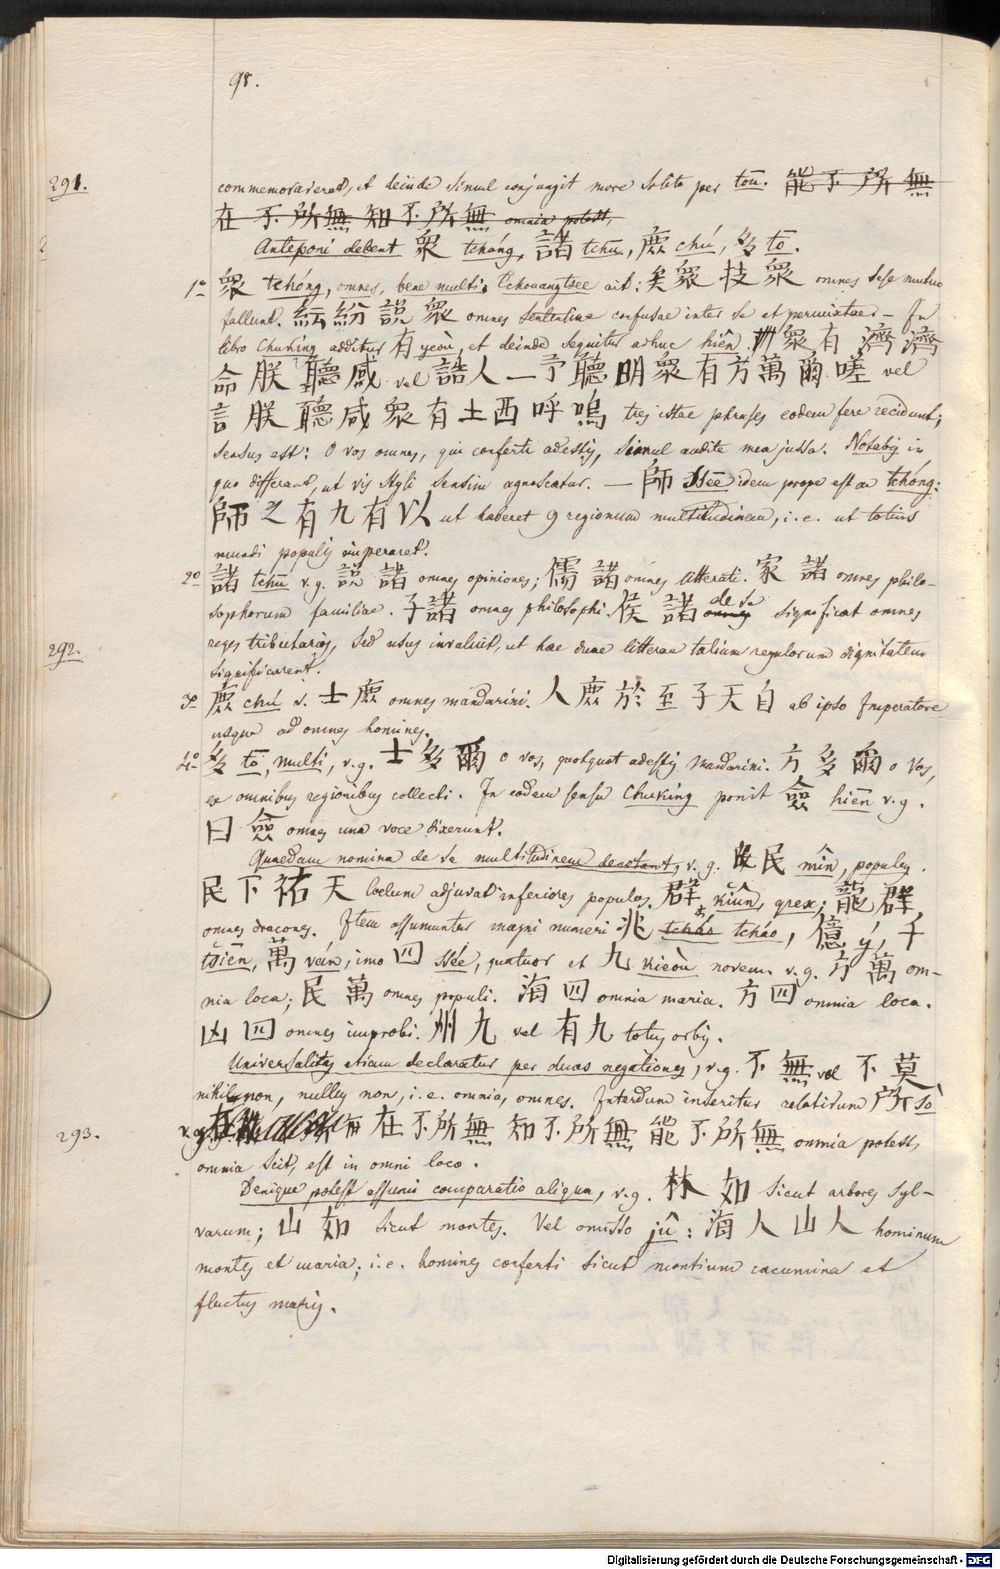 98.
291.
commemoraverat, et deinde simul conjungit more solito per toū. 能不所無
在不所無 知不所無 omnia potest,
Anteponi debent 衆 tchóng, 諸 tchū, 庶 chú, 多 tō.
1º 衆 tchóng, omnes, bene multi. Tchouangtsee ait: 矣衆技衆 omnes sese mutuo
fallunt. 紜紛說衆 omnes sententiae confusae inter se et permixtae. In
libro Chuking additur 有 yeoù, et deinde sequitur adhuc hiên. 衆有濟濟
命朕聽咸 vel 誥人一予聽明衆有方萬爾嗟 vel
言朕聽咸衆有土西呼嗚 tres istae phrases eodem fere recidunt;
sensus est: O vos omnes, qui conferti adestis, simul audite mea jussa. Notabis in
quo differant, ut vis styli sensim agnoscatur. — 師 ssēe idem prope est ac tchóng:
師之有九有以 ut haberet 9 regionum multitudinem, i.e. ut totius
mundi populis imperaret.
2º 諸 tchū v.g. 說諸 omnes opiniones; 儒諸 omnes litterati. 家諸 omnes philo-
sophorum familiae. 子諸 omnes philosophi. 侯諸 omnes de se significat omnes
292.
reges tributarios, sed usus invaluit, ut hae duae litterae talium regulorum dignitatem
significarent.
3º 庶 chú v. 士庶 omnes mandarini. 人庶於至子天自 ab ipso Imperatore
usque ad omnes homines.
4º 多 tō, multi, v.g. 士多爾 o vos, quotquot adestis mandarini. 方多爾 o vos,
ex omnibus regionibus collecti. In eodem sensu Chuking ponit 僉 hiēn v.g.
曰僉 omnes una voce dixerunt.
Quaedam nomina de se multitudinem denotant, v.g. 民 mîn, populus.
民下祐天 Coelum adjuvat inferiores populos. 群 kiûn, grex; 龍群
omnes dracones. Item assumuntur magni numeri 兆 tcháo tcháo, 億 ý, 千
tsiēn, 萬 ván, imo 四 ssée, quatuor et 九 kieoù novem. v.g. 方萬 om-
nia loca; 民萬 omnes populi. 海四 omnia maria. 方四 omnia loca.
凶四 omnes improbi. 州九 vel 有九 totus orbis.
Universalitas etiam declaratur per duas negationes, v.g. 不無 vel 不莫
nihil non, nullus non, i.e. omnia, omnes. Interdum inseritur relativum 所 sò
293.
v.g. 在不所無 知不所無 能不所無 omnia potest,
omnia scit, est in omni loco.
Denique potest assumi comparatio aliqua, v.g. 林如 sicut arbores syl-
varum; 山如 sicut montes. Vel omisso jû: 海人山人 hominum
montes et maria; i.e. homines conferti sicut montium cacumina et
fluctus maris.
Digitalisierung gefördert durch die Deutsche Forschungsgemeinschaft - DFG